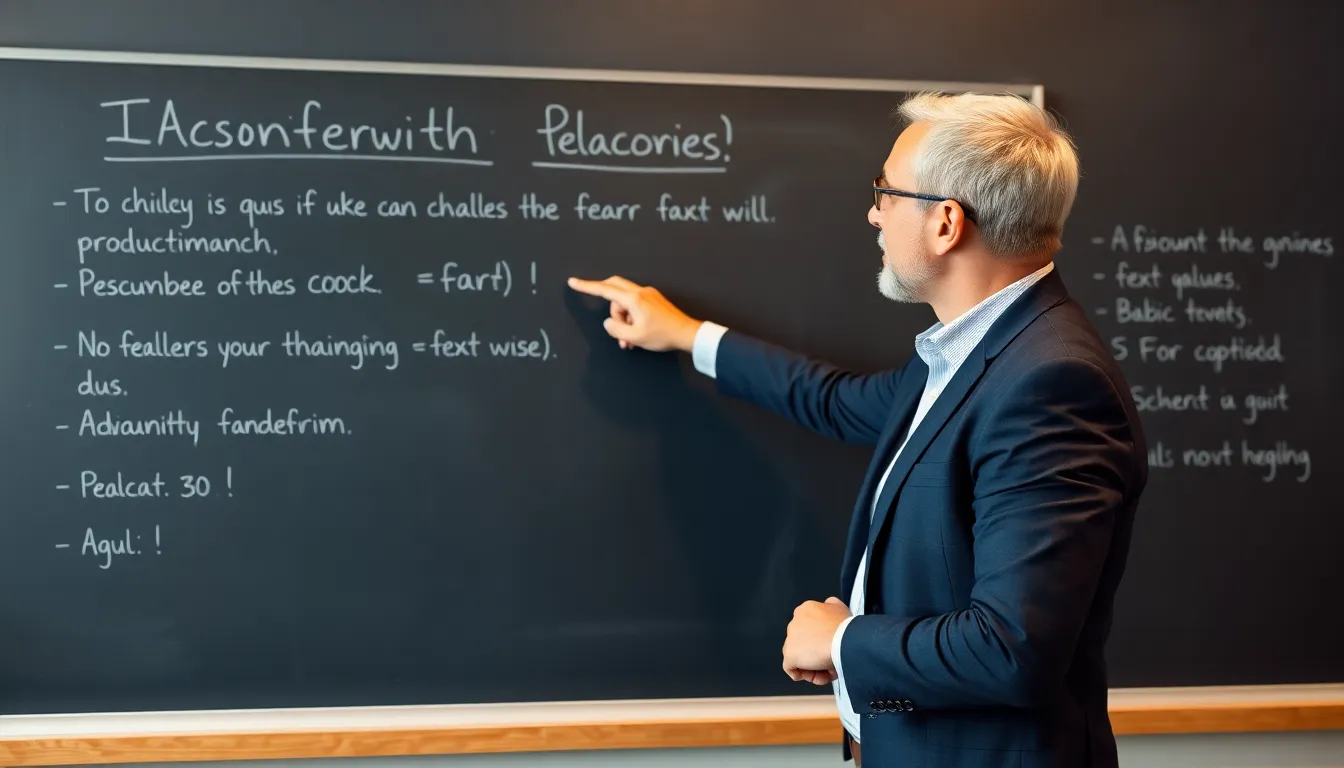 IAcsonferwith Pelacories!
- To chiley is qus if uke can challes the fearr faxt will.
productimanch.
- Pescunbee of thes coock. = fart) !
- No feallers your thainging = fext wise).
dus.
- Advaunitty fandefrim.
- Pealcat. 30 !
- Agul: !
- A fsiount the gnines
- fext galues.
- Babic tevets.
5 For coptisdd
Schent u guit
uls novt hegling